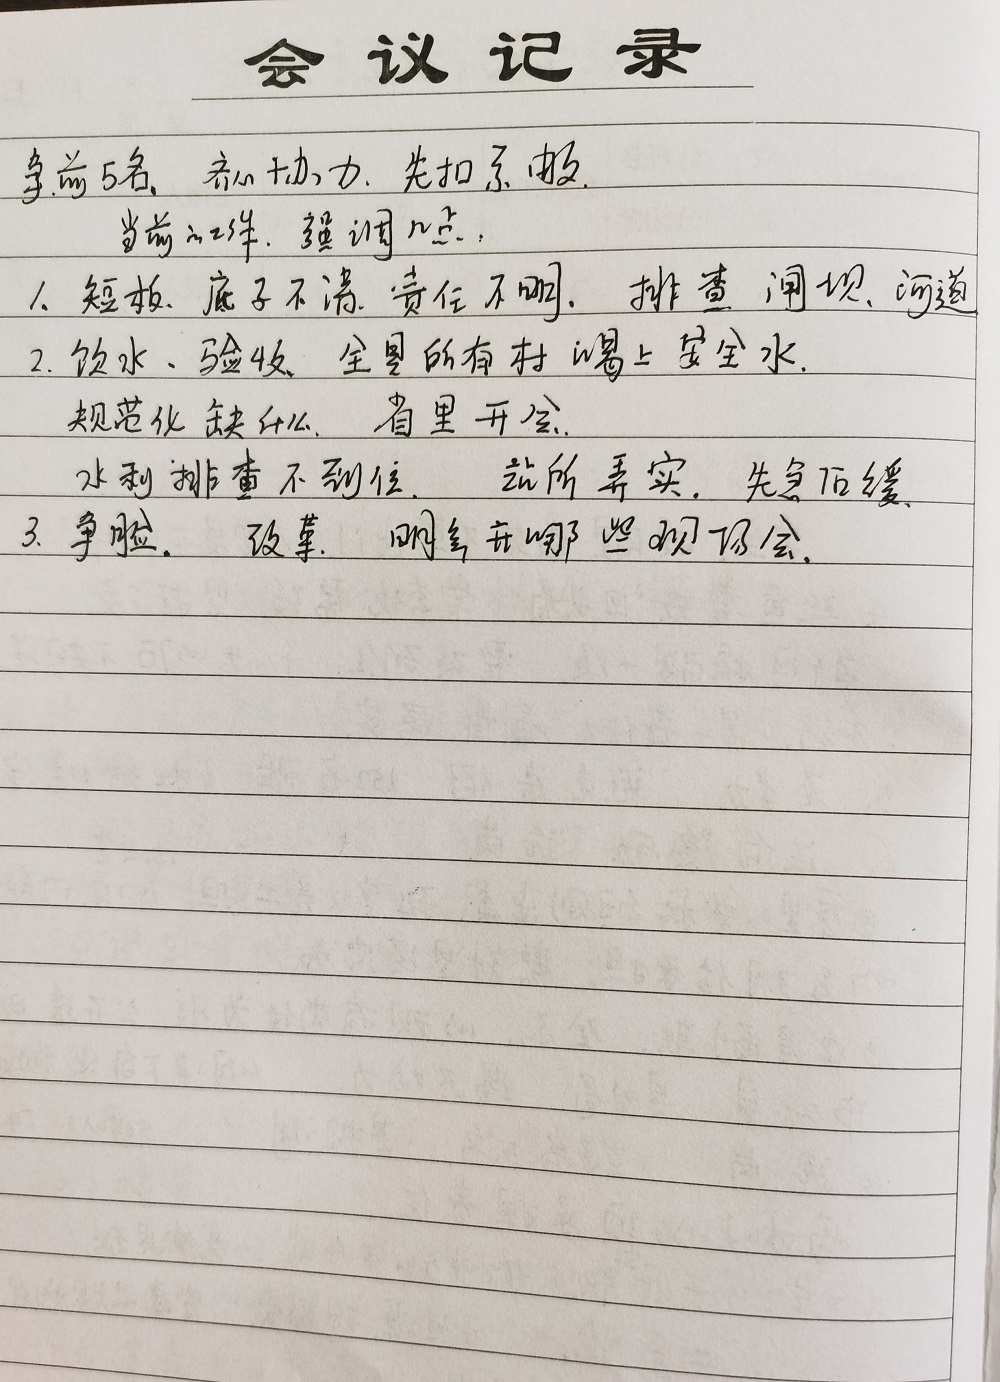 会议记录
争前5名、齐心协力、先扣系
当前的工作、强调几点:
1、短板、底子不清、责任不明、排查闸坝、河道
2、饮水、验收、全县所有村喝上安全水.
规范化缺什么、省里开会.
水利排查不到位. 站所弄实. 先急后缓、
3、争脸. 改革. 明年在哪些现场会.